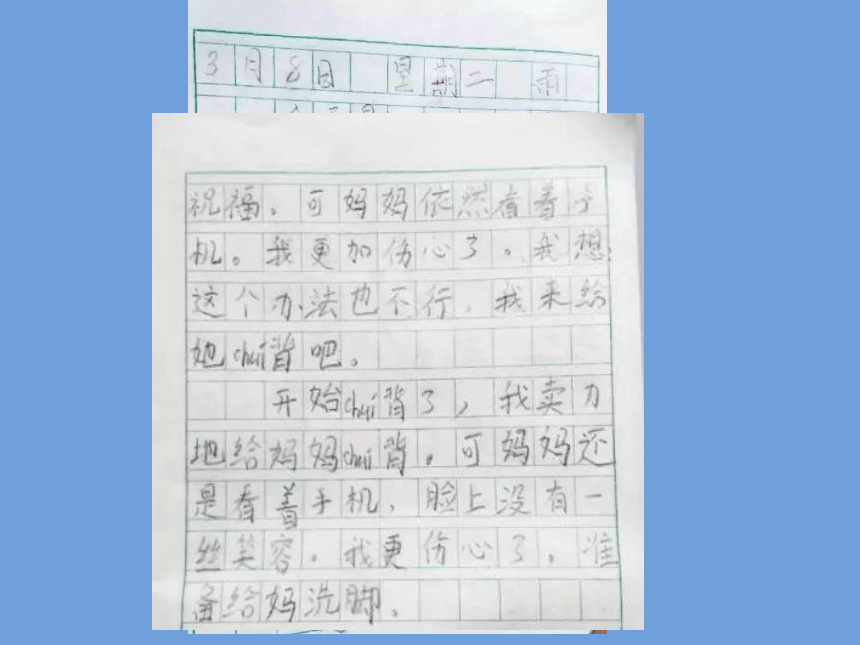 3月8日 星期二 雨
祝福。可妈妈依然看着手
机。我更加伤心了。我想:
这个办法也不行,我来给
她chuí背吧。
开始chuí背了,我卖力
地给妈妈chuí背。可妈妈还
是看着手机,脸上没有一
丝笑容。我更伤心了,准
备给妈洗脚。